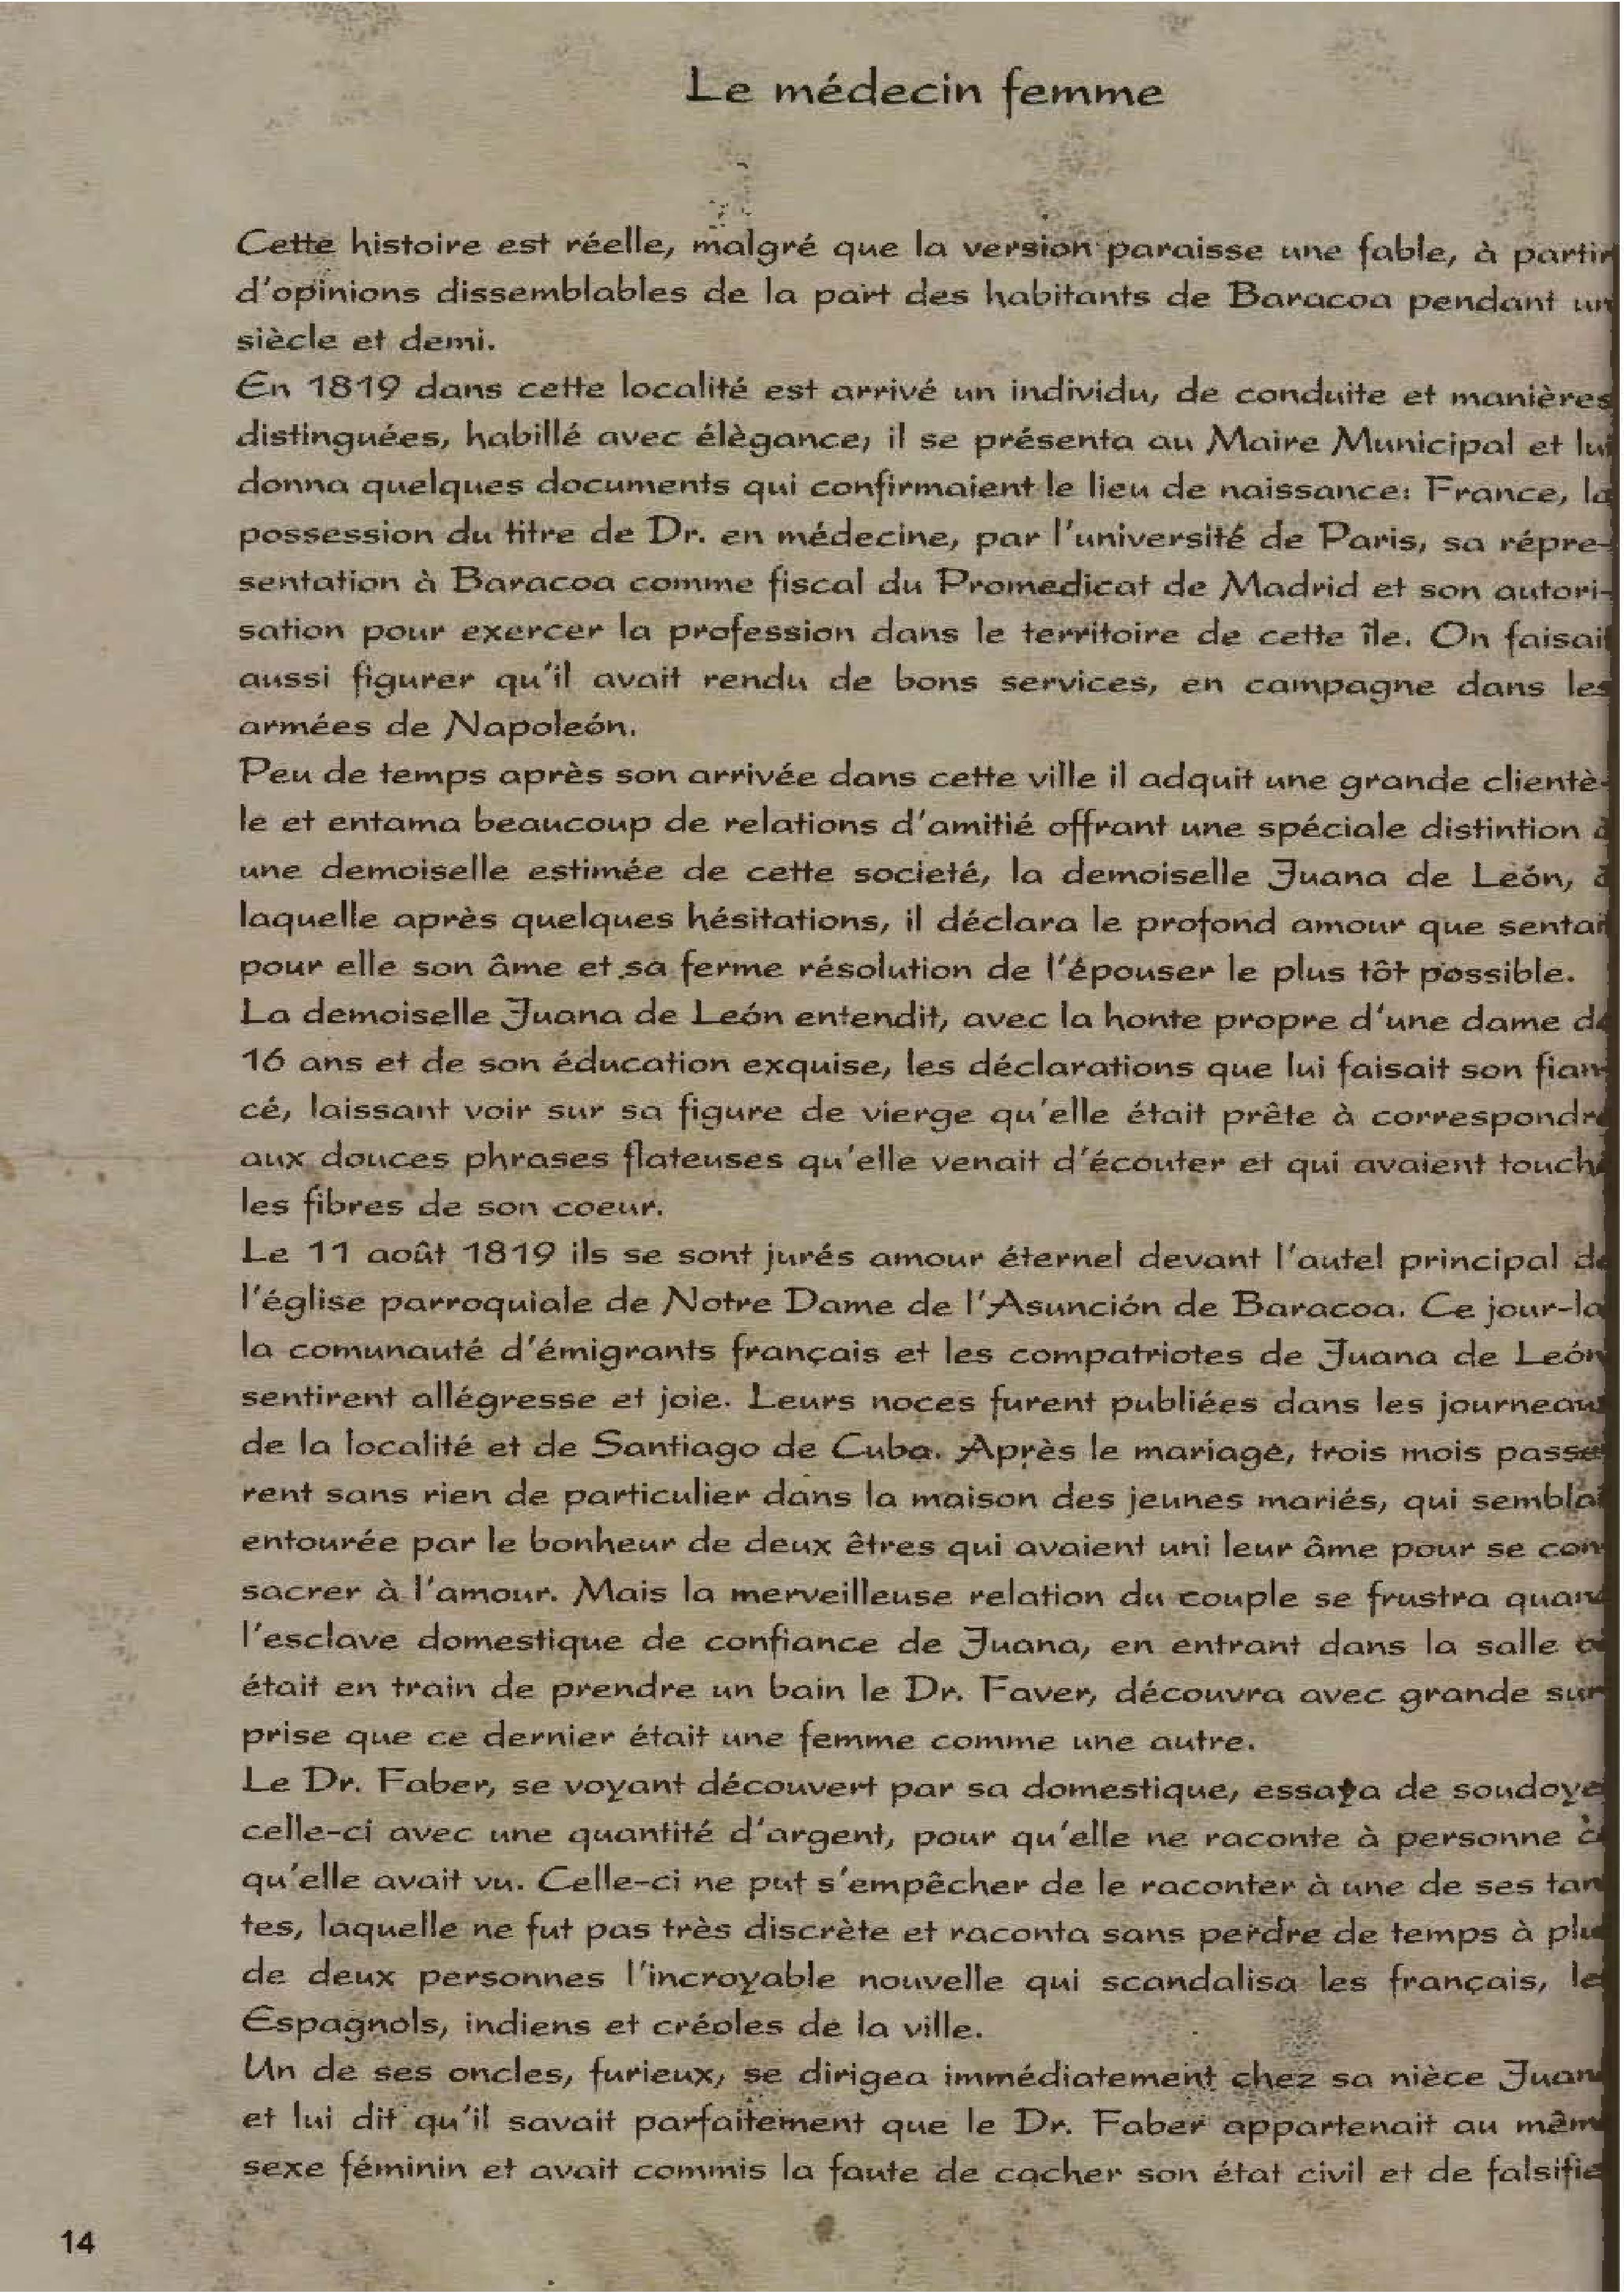 Le médecin femme
Cette histoire est réelle, malgré que la version paraisse une fable, à partir
d'opinions dissemblables de la part des habitants de Baracoa pendant un
siècle et demi.
En 1819 dans cette localité est arrivé un individu, de conduite et manières
distinguées, habillé avec élègance; il se présenta au Maire Municipal et lui
donna quelques documents qui confirmaient le lieu de naissance: France, la
possession du titre de Dr. en médecine, par l'université de Paris, sa répre-
sentation à Baracoa comme fiscal du Promedicat de Madrid et son autori-
sation pour exercer la profession dans le territoire de cette île. On faisait
aussi figurer qu'il avait rendu de bons services, en campagne dans les
armées de Napoleón.
Peu de temps après son arrivée dans cette ville il adquit une grande clientè-
le et entama beaucoup de relations d'amitié offrant une spéciale distintion à
une demoiselle estimée de cette societé, la demoiselle Juana de León, à
laquelle après quelques hésitations, il déclara le profond amour que sentait
pour elle son âme et sa ferme résolution de l'épouser le plus tôt possible.
La demoiselle Juana de León entendit, avec la honte propre d'une dame de
16 ans et de son éducation exquise, les déclarations que lui faisait son fian-
cé, laissant voir sur sa figure de vierge qu'elle était prête à correspondre
aux douces phrases flateuses qu'elle venait d'écouter et qui avaient touché
les fibres de son coeur.
Le 11 août 1819 ils se sont jurés amour éternel devant l'autel principal de
l'église parroquiale de Notre Dame de l'Asunción de Baracoa. Ce jour-la
la comunauté d'émigrants français et les compatriotes de Juana de León
sentirent allégresse et joie. Leurs noces furent publiées dans les journeau
de la localité et de Santiago de Cuba. Après le mariage, trois mois passe
rent sans rien de particulier dans la maison des jeunes mariés, qui semblai
entourée par le bonheur de deux êtres qui avaient uni leur âme pour se con
sacrer à l'amour. Mais la merveilleuse relation du couple se frustra quan
l'esclave domestique de confiance de Juana, en entrant dans la salle
était en train de prendre un bain le Dr. Faver, découvra avec grande sur
prise que ce dernier était une femme comme une autre.
Le Dr. Faber, se voyant découvert par sa domestique, essaya de soudoye
celle-ci avec une quantité d'argent, pour qu'elle ne raconte à personne c
qu'elle avait vu. Celle-ci ne put s'empêcher de le raconter à une de ses tan
tes, laquelle ne fut pas très discrète et raconta sans perdre de temps à plu
de deux personnes l'incroyable nouvelle qui scandalisa les français, le
Espagnols, indiens et créoles de la ville.
Un de ses oncles, furieux, se dirigea immédiatement chez sa nièce Juan
et lui dit qu'il savait parfaitement que le Dr. Faber appartenait au mêm
sexe féminin et avait commis la faute de cacher son état civil et de falsifie
14